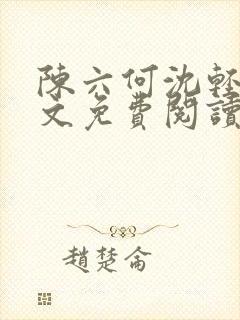 陳六何沈輕
文免費閱讀
趙楚侖